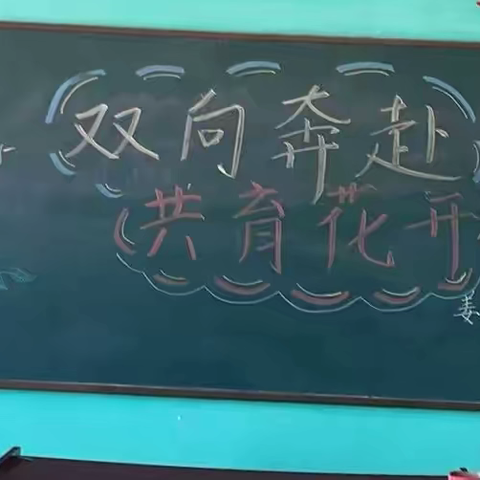 双向奔赴
共育花开
姜